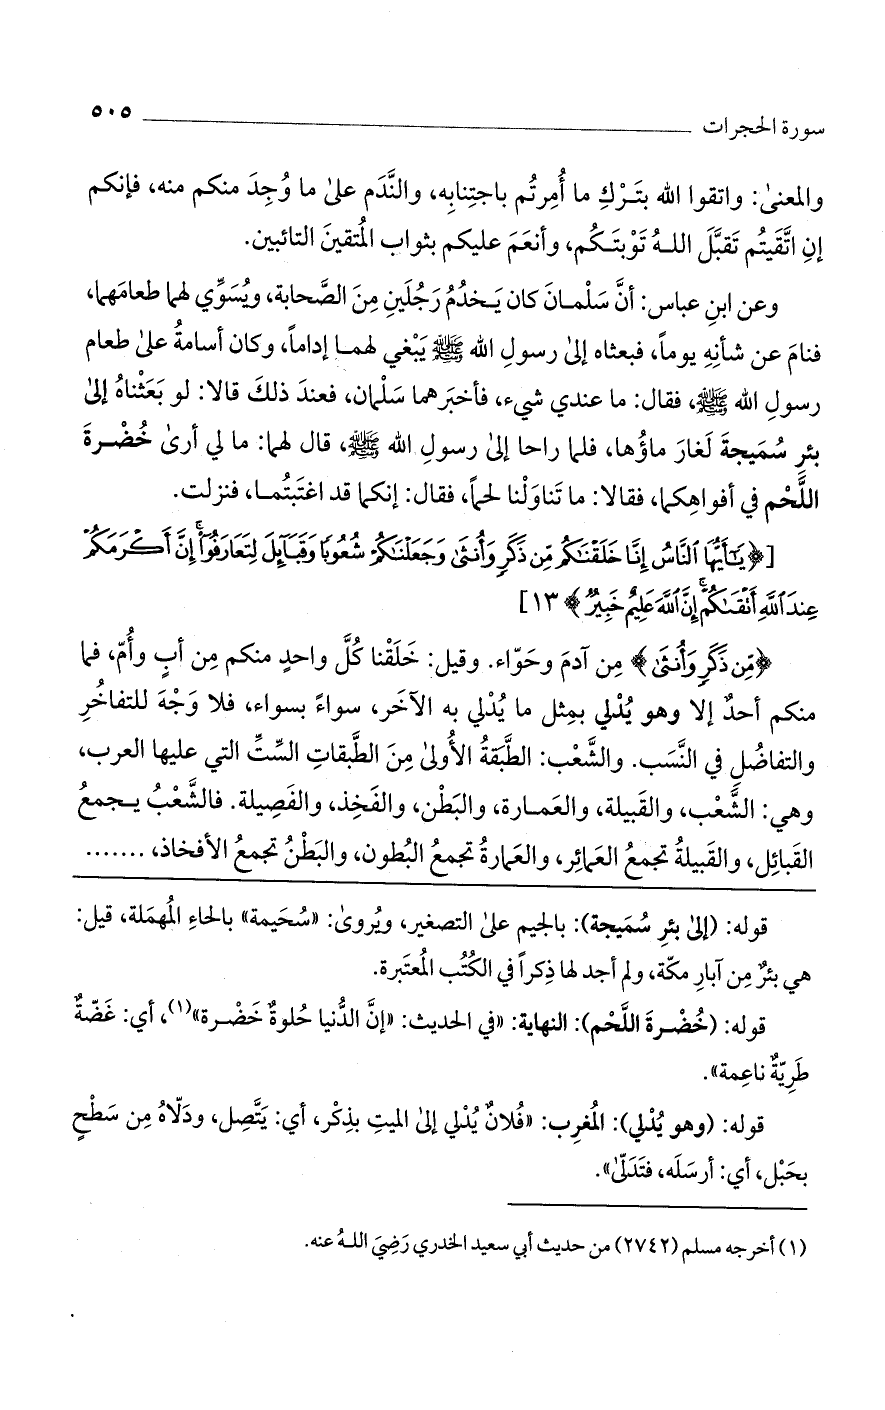 سورة الحجرات ٥٠٥
والمعنىٰ: واتقوا الله بتَرْكِ ما أُمِرتُم باجتِنابِه، والنَّدَم علىٰ ما وُجِدَ منكم منه، فإنكم
إنِ اتَّقَيتُم تَقبَّلَ اللهُ تَوْبتَكُم، وأنعَمَ عليكم بثواب المُتقينَ التائبين.
وعن ابنِ عباس: أنَّ سَلْمانَ كان يَخدُمُ رَجُلَينِ مِنَ الصَّحابة، ويُسَوِّي لهما طعامَهما،
فنامَ عن شأنِهِ يوماً، فبعثاه إلىٰ رسولِ الله ﷺ يَبْغي لهما إداماً، وكان أسامةُ علىٰ طعام
رسولِ الله ﷺ، فقال: ما عندي شيء، فأخبَرهما سَلْمان، فعندَ ذلكَ قالا: لو بَعَثْناهُ إلىٰ
بئرِ سُمَيجةَ لَغارَ ماؤُها، فلما راحا إلىٰ رسولِ الله ﷺ، قال لهما: ما لي أرىٰ خُضْرةَ
اللَّحْم في أفواهِكما، فقالا: ما تَناوَلْنا لحماً، فقال: إنكما قد اغتَبتُما، فنزلت.
[﴿يَٰٓأَيُّهَا ٱلنَّاسُ إِنَّا خَلَقْنَٰكُم مِّن ذَكَرٍ وَأُنثَىٰ وَجَعَلْنَٰكُمْ شُعُوبًا وَقَبَآئِلَ لِتَعَارَفُوٓا۟ ۚ إِنَّ أَكْرَمَكُمْ
عِندَ ٱللَّهِ أَتْقَىٰكُمْ ۚ إِنَّ ٱللَّهَ عَلِيمٌ خَبِيرٌ﴾ ١٣]
﴿مِّن ذَكَرٍ وَأُنثَىٰ﴾ مِن آدمَ وحَوّاء. وقيل: خَلَقْنا كُلَّ واحدٍ منكم مِن أبٍ وأُمّ، فما
منكم أحدٌ إلا وهو يُدْلي بمِثل ما يُدْلي به الآخَر، سواءً بسواء، فلا وَجْهَ للتفاخُرِ
والتفاضُلِ في النَّسَب. والشَّعْب: الطَّبَقةُ الأُولىٰ مِنَ الطَّبقاتِ السِّتِّ التي عليها العرب،
وهي: الشَّعْب، والقَبيلة، والعَمارة، والبَطْن، والفَخِذ، والفَصِيلة. فالشَّعْبُ يجمعُ
القبائِل، والقَبيلةُ تجمعُ العَمائر، والعَمارةُ تجمعُ البُطون، والبَطْنُ تجمعُ الأفخاذ، .......
قوله: (إلىٰ بئرِ سُمَيجة): بالجيم علىٰ التصغير، ويُروىٰ: «سُحَيمة» بالحاءِ المُهمَلة، قيل:
هي بئرٌ مِن آبارِ مكّة، ولم أجد لها ذِكراً في الكُتُب المُعتَبرة.
قوله: (خُضْرةَ اللَّحْم): النهاية: «في الحديث: «إنَّ الدُّنيا حُلوةٌ خَضْرة»(١)، أي: غَضّةٌ
طَرِيّةٌ ناعِمة».
قوله: (وهو يُدْلي): المُغرِب: «فُلانٌ يُدْلي إلىٰ الميتِ بذِكْر، أي: يَتَّصِل، ودَلّاهُ مِن سَطْحٍ
بحَبْل، أي: أرسَلَه، فتَدَلّىٰ».
(١) أخرجه مسلم (٢٧٤٢) من حديث أبي سعيد الخدري رَضِيَ اللهُ عنه.